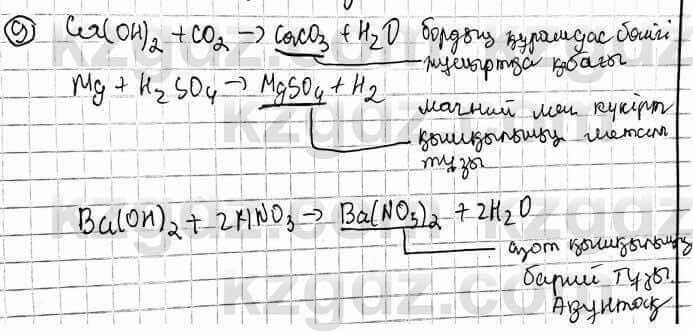 9) Ca(OH)₂ + CO₂ → CaCO₃ + H₂O бордың құрамдас бөлігі
жұмыртқа қабығы
Mg + H₂SO₄ → MgSO₄ + H₂
магний мен күкірт
қышқылының металл
тұзы
Ba(OH)₂ + 2HNO₃ → Ba(NO₃)₂ + 2H₂O
азот қышқылының
барий тұзы
kzgdz.com